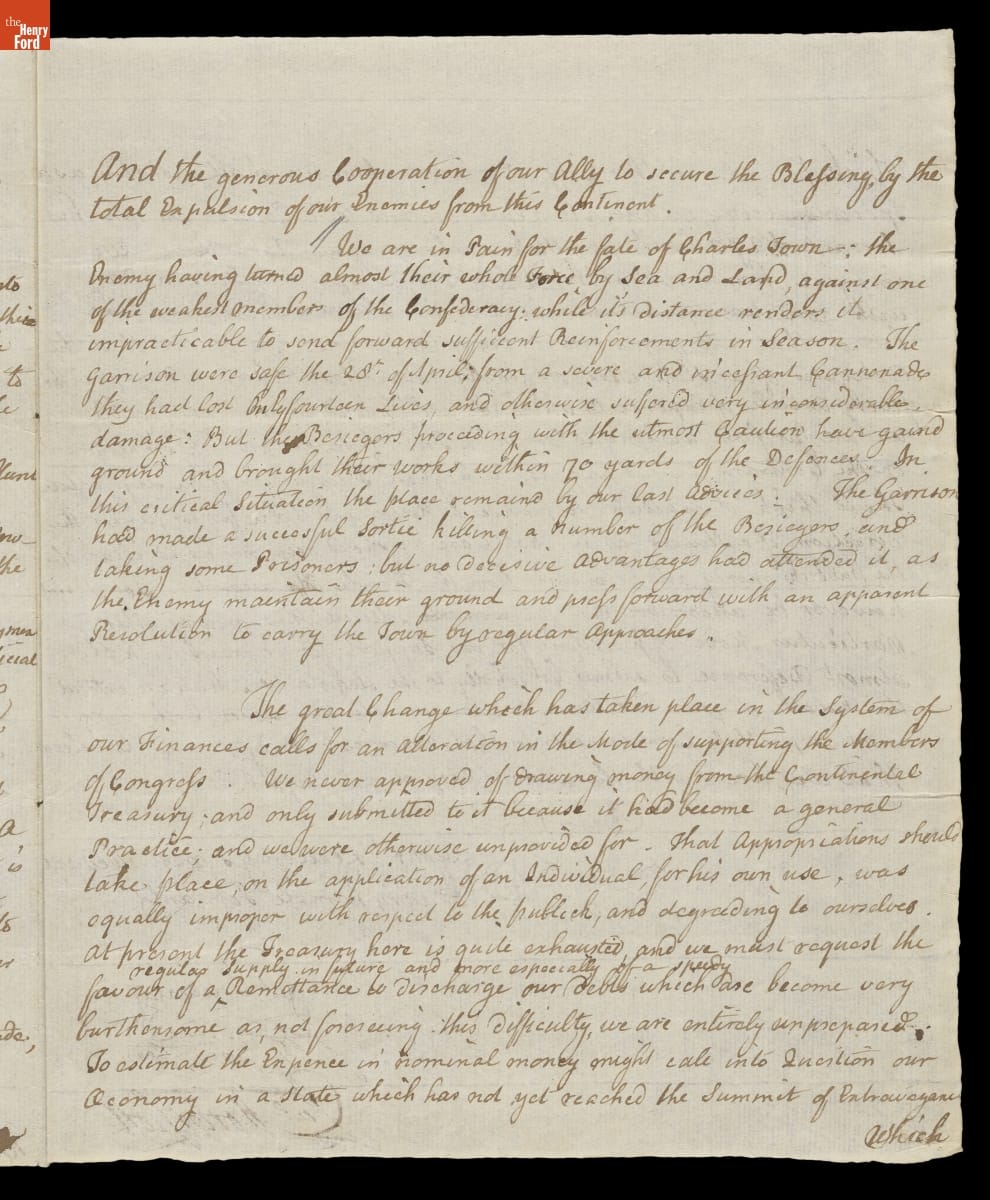 the
Henry
Ford
And the generous Cooperation of our Ally to secure the Blessing, by the
total Expulsion of our Enemies from this Continent.
We are in Pain for the fate of Charles Town —: the
Enemy having turned almost their whole Force by Sea and Land, against one
of the weakest members of the Confederacy; while it's distance renders it
impracticable to send forward sufficient Reinforcements in Season. The
Garrison were safe the 28th of April; from a severe and incessant Cannonade
they had lost only fourteen Lives, and otherwise suffered very inconsiderable
damage: But the Besiegers proceeding with the utmost Caution have gaind
ground and brought their works within 70 yards of the Defences. In
this critical Situation the place remaind by our last advices. The Garrison
had made a successful Sortie killing a number of the Besiegers, and
taking some Prisoners: but no decisive advantages had attended it, as
the Enemy maintain their ground and press forward with an apparent
Resolution to carry the Town by regular Approaches.
The great Change which has taken place in the System of
our Finances calls for an alteration in the Mode of supporting the Members
of Congress. We never approved of drawing money from the Continental
Treasury; and only submitted to it because it had become a general
Practice; and we were otherwise unprovided for. That Appropriations should
take place, on the application of an Individual, for his own use, was
equally improper with respect to the publick, and degrading to ourselves.
At present the Treasury here is quite exhausted, and we must request the
regular Supply in future and more especially of a speedy
favour of a Remittance to discharge our Debts which are become very
burthensome as, not foreseeing this difficulty, we are entirely unprepared.
To estimate the Expence in nominal money might call into Question our
Oeconomy in a State which has not yet reached the Summit of Extravagance
Which